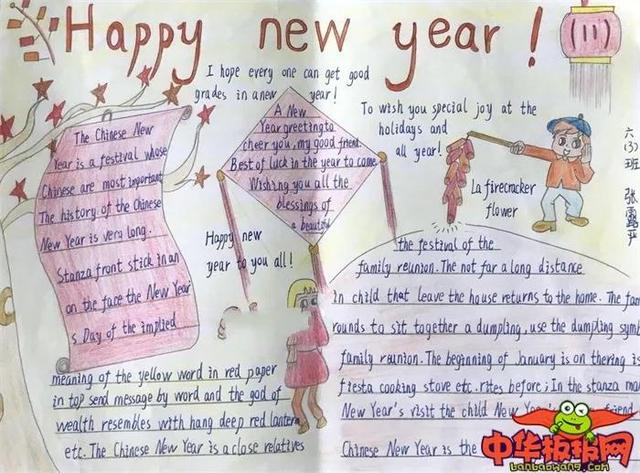 Happy new year!
(11)
I hope every one can get good
grades in a new year!
A New
Year greeting to
cheer you, my good friend.
Best of luck in the year to come
Wishing you all the
blessings of
a beautiful
To wish you special joy at the
holidays and
all year!
六(3)班 张
La firecracker
flower
The Chinese New
Year is a festival whose
Chinese are most important
The history of the Chinese
New Year is very long.
Stanza front stick in an
on the face the New Year
s Day of the implied
meaning of the yellow word in red paper
in top send message by word and the god of
wealth resembles with hang deep red lantern
etc. The Chinese New Year is a close relatives
Happy new
year to you all!
the festival of the
family reunion. The not far a long distance
in child that leave the house returns to the home. The fa
rounds to sit together a dumpling, use the dumpling sym
family reunion. The beginning of January is on thering is
fiesta cooking stove etc. rites before; In the stanza ma
New Year's visit the child New friend
Chinese New Year is the
中华板报网
banbaowang.com